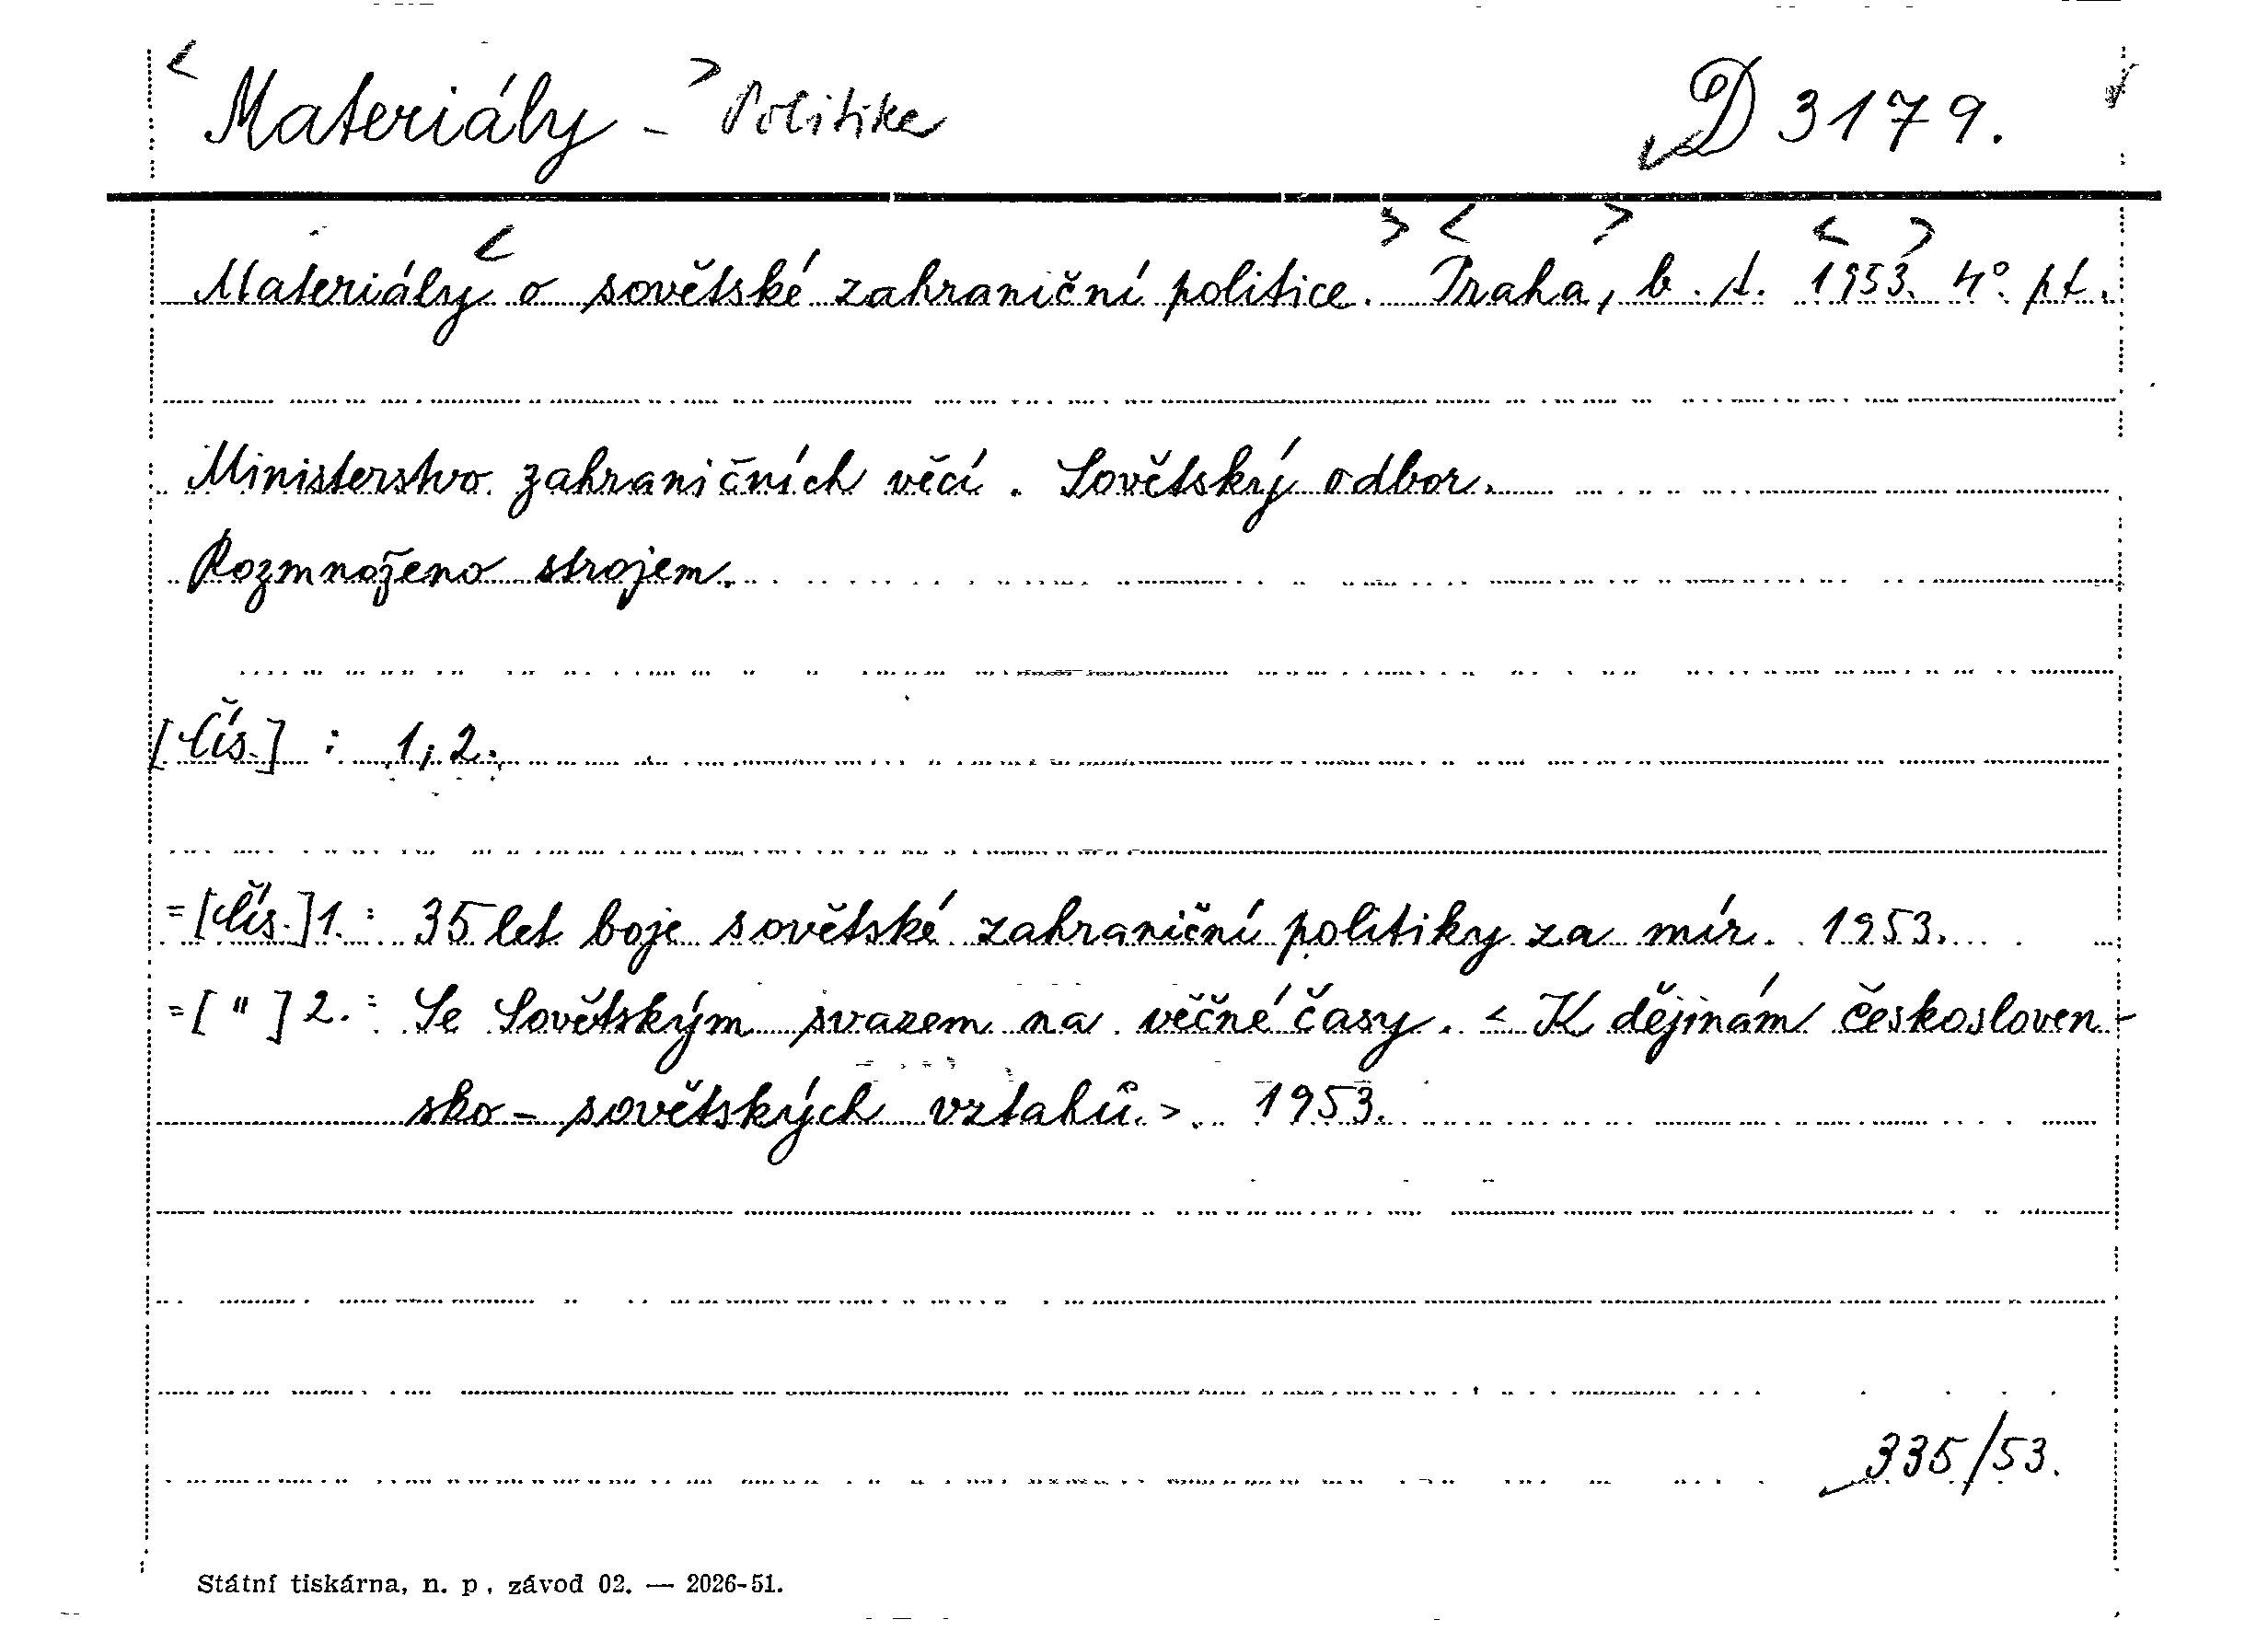 < Materiály - > Politika D 3179.
Materiály < o sovětské zahraniční politice. > < Praha, > b. t. < 1953. > 4° pt.
Ministerstvo zahraničních věcí. Sovětský odbor.
Rozmnoženo strojem.
[Čís.] : 1; 2.
=[Čís.] 1. : 35 let boje sovětské zahraniční politiky za mír. 1953.
=[ " ] 2. : Se Sovětským svazem na věčné časy. < K dějinám českosloven-
sko - sovětských vztahů. > 1953.
335/53.
Státní tiskárna, n. p., závod 02. — 2026-51.